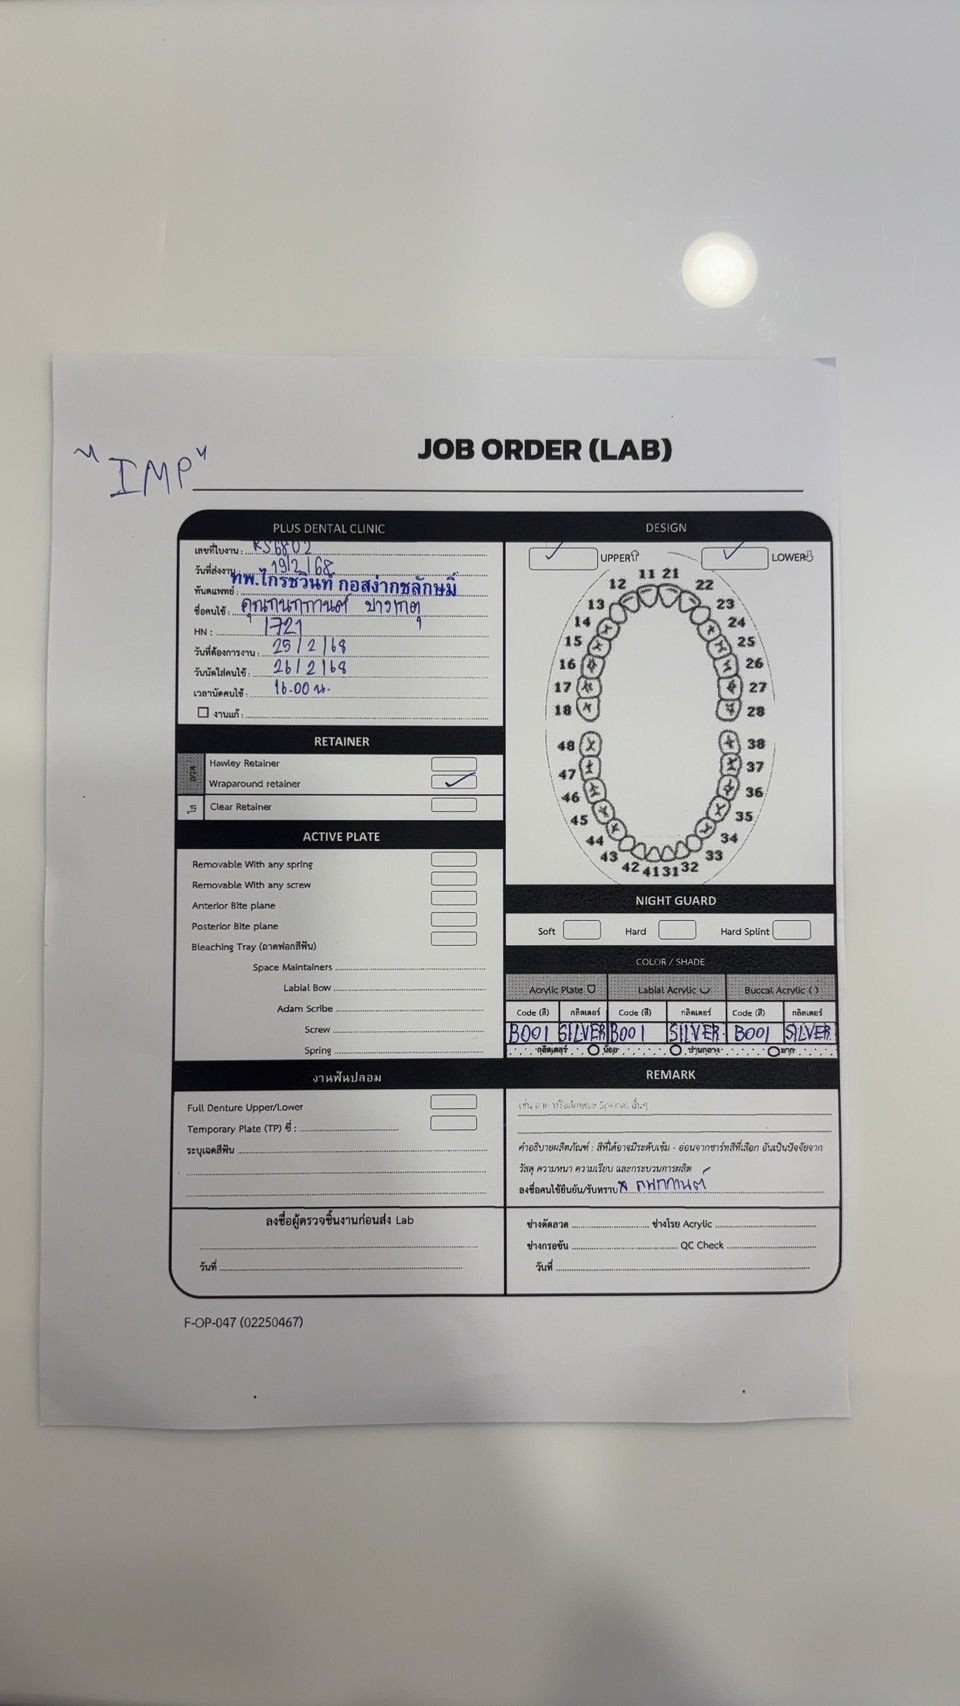 "IMP"
JOB ORDER (LAB)
PLUS DENTAL CLINIC
เลขที่ใบงาน : RS6802
วันที่ส่งงาน 19/2/68
ทันตแพทย์ : ทพ.ไกรชวินท์ กอสง่ากชลักษมิ์
ชื่อคนไข้ :
HN : 1721
วันที่ต้องการงาน : 25/2/68
วันนัดใส่คนไข้ : 26/2/68
เวลานัดคนไข้ : 16.00 น.
งานแก้ :
RETAINER
ลวด
Hawley Retainer
Wraparound retainer
ใส
Clear Retainer
ACTIVE PLATE
Removable With any spring
Removable With any screw
Anterior Bite plane
Posterior Bite plane
Bleaching Tray (ถาดฟอกสีฟัน)
Space Maintainers
Labial Bow
Adam Scribe
Screw
Spring
งานฟันปลอม
Full Denture Upper/Lower
Temporary Plate (TP) ซี่ :
ระบุเฉดสีฟัน
ลงชื่อผู้ตรวจชิ้นงานก่อนส่ง Lab
วันที่
DESIGN
UPPER LOWER
11 21
12 22
13 23
14 24
15 25
16 26
17 27
18 28
48 38
47 37
46 36
45 35
44 34
43 33
42 41 31 32
NIGHT GUARD
Soft Hard Hard Splint
COLOR / SHADE
Acrylic Plate Labial Acrylic Buccal Acrylic ( )
Code (สี) กลิตเตอร์ Code (สี) กลิตเตอร์ Code (สี) กลิตเตอร์
B001 SILVER B001 SILVER B001 SILVER
กลิตเตอร์ น้อย ปานกลาง มาก
REMARK
คำอธิบายผลิตภัณฑ์ : สีที่ได้อาจมีระดับเข้ม - อ่อนจากชาร์ทสีที่เลือก อันเป็นปัจจัยจาก
วัสดุ ความหนา ความเรียบ และกระบวนการผลิต
ลงชื่อคนไข้ยืนยัน/รับทราบ
ช่างดัดลวด ช่างโรย Acrylic
ช่างกรอขัน QC Check
วันที่
F-OP-047 (02250467)